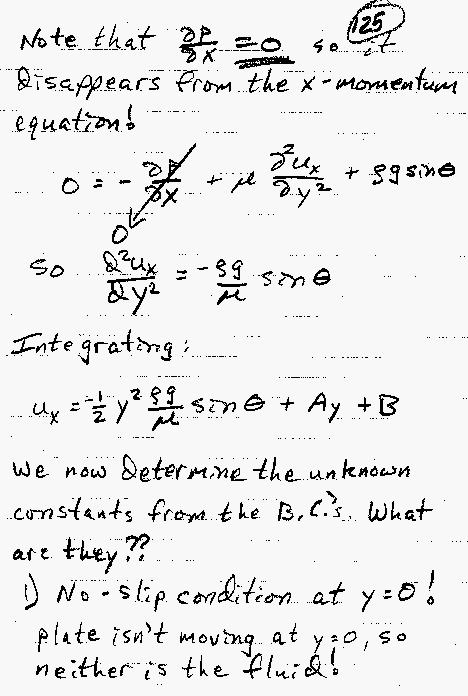 125
Note that ∂P/∂x = 0 so it
disappears from the x-momentum
equation!
0 = - ∂P/∂x + μ ∂²uₓ/∂y² + ρg sinθ
0
so ∂²uₓ/∂y² = -ρg/μ sinθ
Integrating:
uₓ = -1/2 y² ρg/μ sinθ + Ay + B
We now determine the unknown
constants from the B.C.'s. What
are they??
1) No-slip condition at y=0!
plate isn't moving at y=0, so
neither is the fluid!